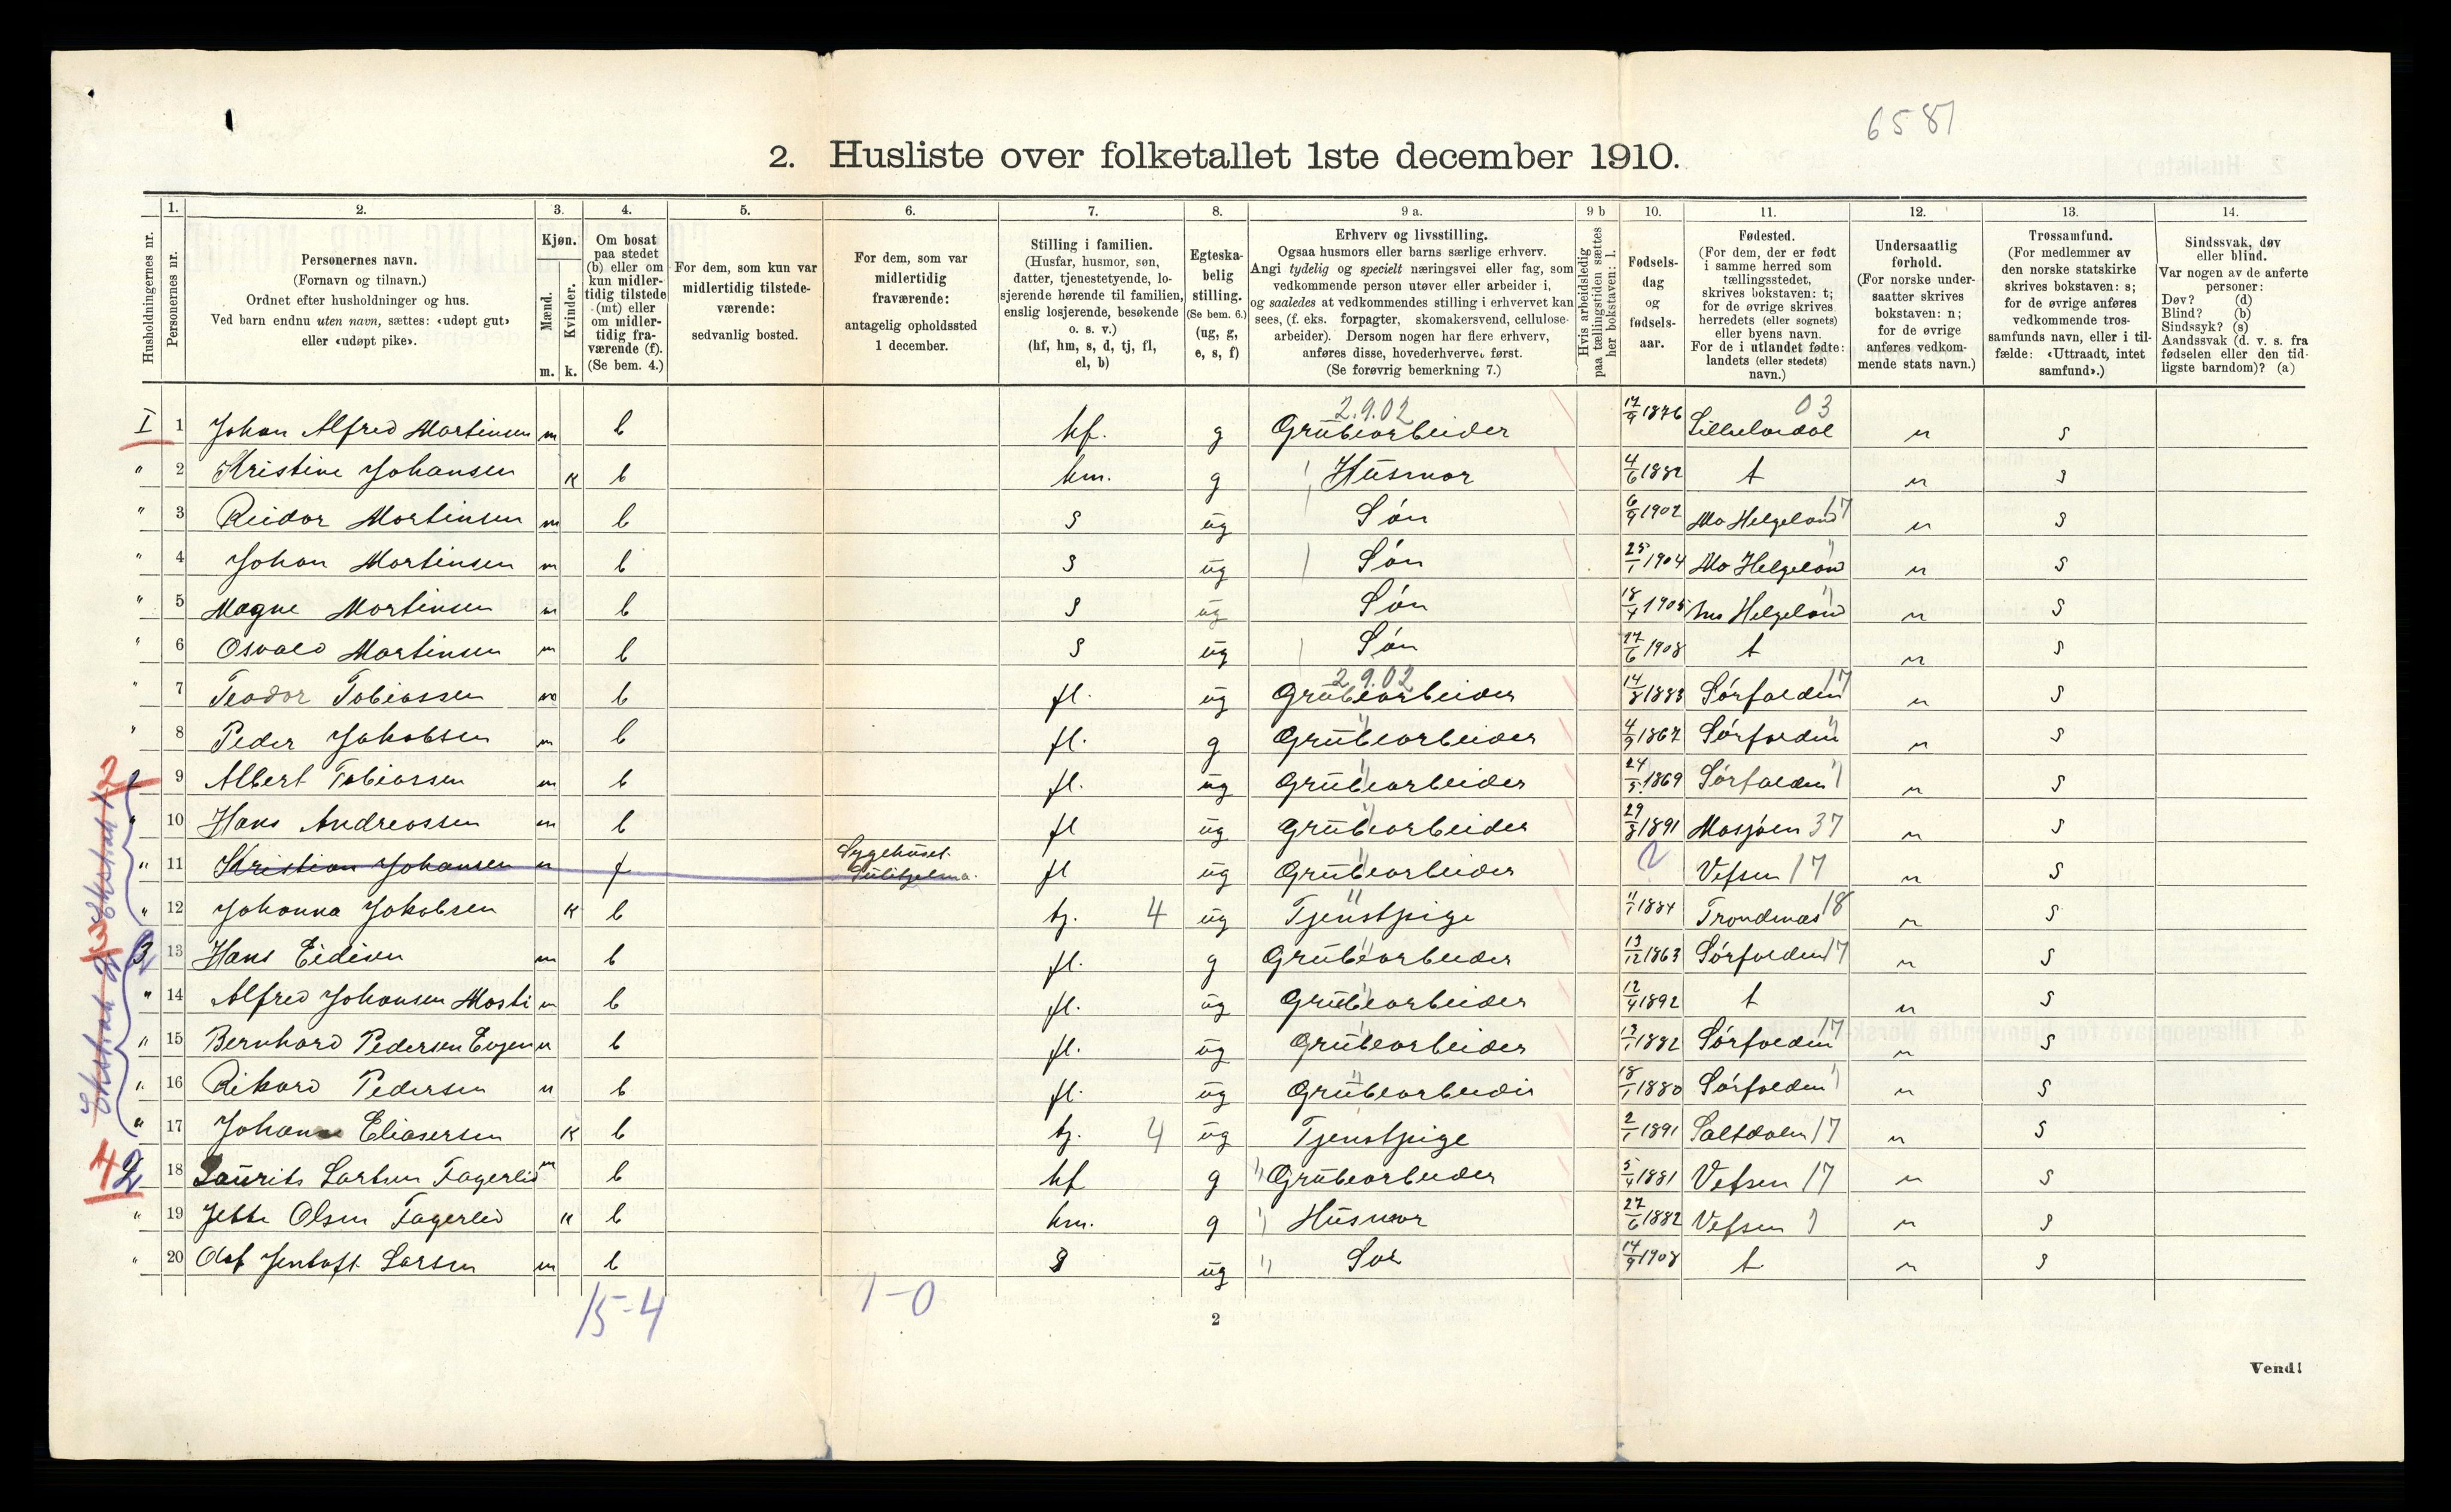 6587
2. Husliste over folketallet 1ste december 1910.
1. 2. 3. 4. 5. 6. 7. 8. 9 a. 9 b 10. 11. 12. 13. 14.
Husholdningernes nr.
Personernes nr.
Personernes navn.
(Fornavn og tilnavn.)
Ordnet efter husholdninger og hus.
Ved barn endnu uten navn, sættes: «udøpt gut»
eller «udøpt pike».
Kjøn.
Mænd.
Kvinder.
m. k.
Om bosat
paa stedet
(b) eller om
kun midler-
tidig tilstede
(mt) eller
om midler-
tidig fra-
værende (f).
(Se bem. 4.)
For dem, som kun var
midlertidig tilstede-
værende:
sedvanlig bosted.
For dem, som var
midlertidig
fraværende:
antagelig opholdssted
1 december.
Stilling i familien.
(Husfar, husmor, søn,
datter, tjenestetyende, lo-
sjerende hørende til familien,
enslig losjerende, besøkende
o. s. v.)
(hf, hm, s, d, tj, fl,
el, b)
Egteska-
belig
stilling.
(Se bem. 6.)
(ug, g,
e, s, f)
Erhverv og livsstilling.
Ogsaa husmors eller barns særlige erhverv.
Angi tydelig og specielt næringsvei eller fag, som
vedkommende person utøver eller arbeider i,
og saaledes at vedkommendes stilling i erhvervet kan
sees, (f. eks. forpagter, skomakersvend, cellulose-
arbeider). Dersom nogen har flere erhverv,
anføres disse, hovederhvervet først.
(Se forøvrig bemerkning 7.)
Hvis arbeidsledig
paa tællingstiden sættes
her bokstaven: l.
Fødsels-
dag
og
fødsels-
aar.
Fødested.
(For dem, der er født
i samme herred som
tællingsstedet,
skrives bokstaven: t;
for de øvrige skrives
herredets (eller sognets)
eller byens navn.
For de i utlandet fødte:
landets (eller stedets)
navn.)
Undersaatlig
forhold.
(For norske under-
saatter skrives
bokstaven: n;
for de øvrige
anføres vedkom-
mende stats navn.)
Trossamfund.
(For medlemmer av
den norske statskirke
skrives bokstaven: s;
for de øvrige anføres
vedkommende tros-
samfunds navn, eller i til-
fælde: «Uttraadt, intet
samfund».)
Sindssvak, døv
eller blind.
Var nogen av de anførte
personer:
Døv? (d)
Blind? (b)
Sindssyk? (s)
Aandssvak (d. v. s. fra
fødselen eller den tid-
ligste barndom)? (a)
2.9.02 03
I 1 Johan Alfred Martinsen m b hf. g Grubearbeider 17/9 1876 Lilleelvedal n s
" 2 Kristine Johansen k b hm. g Husmor 4/6 1882 t n s
" 3 Reidar Martinsen m b s ug Søn 6/9 1902 Mo Helgeland 17 n s
" 4 Johan Martinsen m b s ug Søn 25/1 1904 Mo Helgeland " n s
" 5 Magne Martinsen m b s ug Søn 18/4 1905 Mo Helgeland " n s
" 6 Osvald Martinsen m b s ug Søn 27/6 1908 t n s
2.9.02
" 7 Teodor Tobiassen m b fl. ug Grubearbeider 14/8 1883 Sørfolden 17 n s
" 8 Peder Jakobsen m b fl. g Grubearbeider 4/9 1867 Sørfolden " n s
9 Albert Tobiassen m b fl. ug Grubearbeider 24/5 1869 Sørfolden " n s
" 10 Hans Andreassen m b fl ug Grubearbeider 29/8 1891 Mosjøen 37 n s
" 11 Kristian Johansen m f Sygehuset. Sulitjelma. fl ug Grubearbeider Vefsen 17 n s
" 12 Johanna Jakobsen k b tj. 4 ug Tjenstpige 11/1 1884 Trondenæs 18 n s
13 Hans Eidisen m b fl. g Grubearbeider 13/12 1863 Sørfolden 17 n s
" 14 Alfred Johansen Mosti m b fl. ug Grubearbeider 12/4 1892 t n s
" 15 Bernhard Pedersen Evjen m b fl. ug Grubearbeider 13/1 1882 Sørfolden 17 n s
" 16 Rikard Pedersen m b fl. ug Grubearbeider 18/1 1880 Sørfolden " n s
" 17 Johanne Eliasersen k b tj. 4 ug Tjenstpige 2/1 1891 Saltdalen 17 n s
2 18 Laurits Larsen Fagerlid m b hf g Grubearbeider 5/4 1881 Vefsen 17 n s
" 19 Jette Olsen Fagerlid k b hm. g Husmor 27/6 1882 Vefsen " n s
" 20 Olaf Jentoft Larsen m b s ug Søn 14/9 1908 t n s
15-4 1-0
2
Vend!